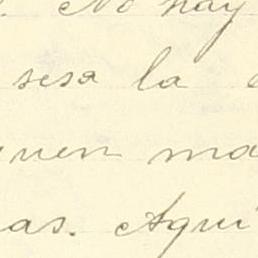 . No hay
sesa la
uen ma
as. Aqui